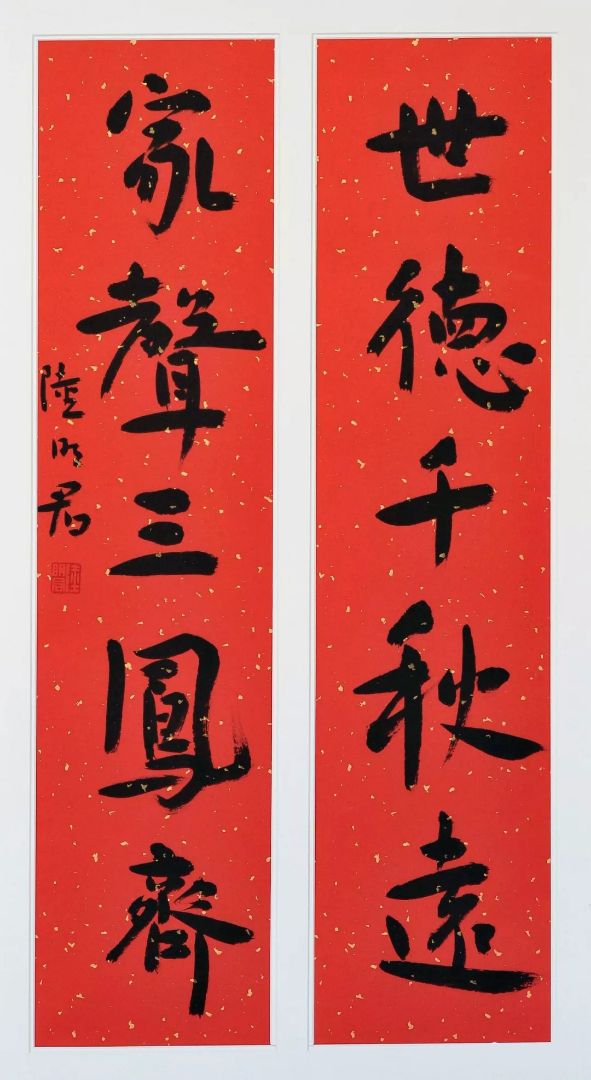 世德千秋遠
家聲三鳳齊
陸明君